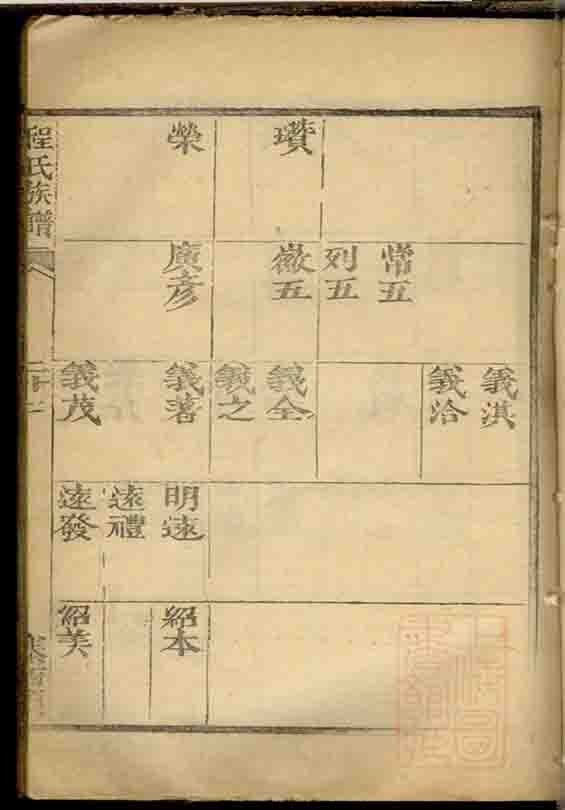 瓚
榮
常五
列五
徽五
庾彥
義淇
義洽
義全
義之
義著
義茂
明遠
遠禮
遠發
紹本
紹美
程氏族譜